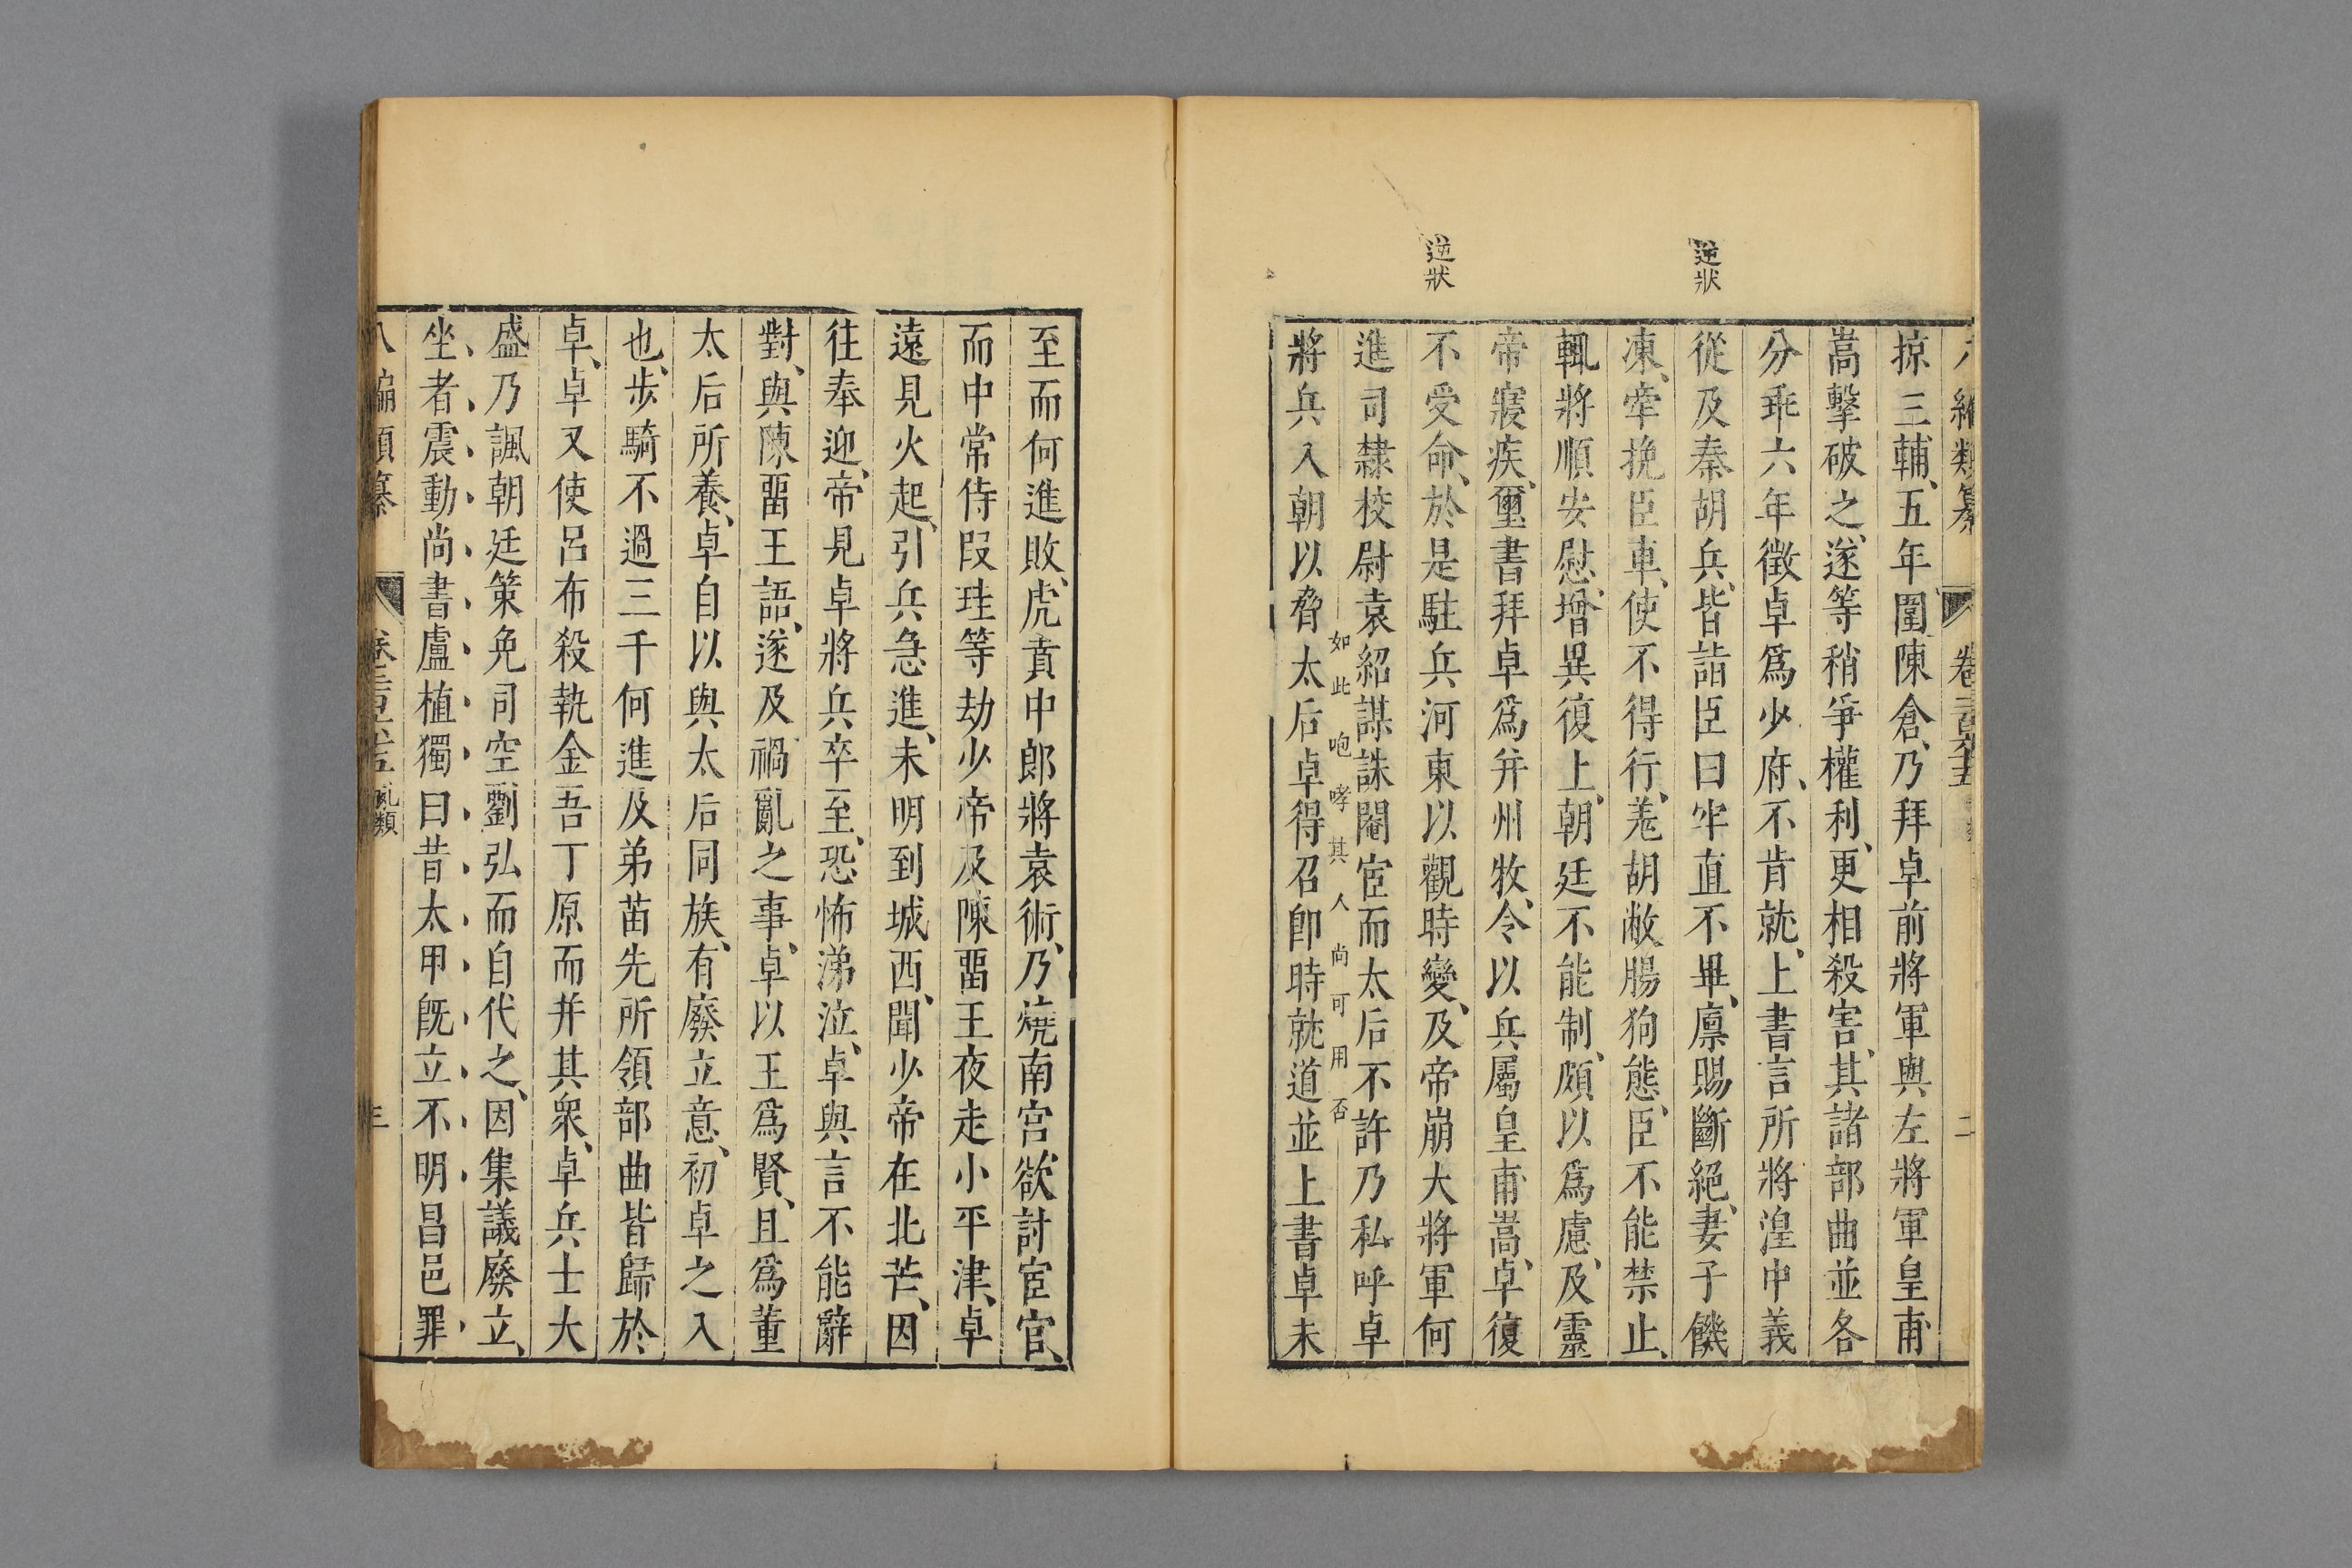 逆狀
逆狀
編類纂
卷二百六十五
二
掠三輔、五年圍陳倉、乃拜卓前將軍與左將軍皇甫
嵩擊破之、遂等稍爭權利、更相殺害、其諸部曲並各
分乖六年徵卓爲少府、不肯就、上書言所將湟中義
從及秦胡兵、皆詣臣曰牢直不畢、廩賜斷絕、妻子饑
凍、牽挽臣車、使不得行、羗胡敝腸狗態、臣不能禁止、
輒將順安慰、增異復上、朝廷不能制、頗以爲慮、及靈
帝寢疾、璽書拜卓爲并州牧、令以兵屬皇甫嵩、卓復
不受命、於是駐兵河東以觀時變、及帝崩大將軍何
進司隸校尉袁紹謀誅閹宦而太后不許乃私呼卓
如此咆哮其人尚可用否
將兵入朝以脅太后卓得召卽時就道並上書卓未
至而何進敗、虎賁中郎將袁術、乃燒南宮、欲討宦官、
而中常侍段珪等劫少帝及陳畱王夜走小平津、卓
遠見火起、引兵急進、未明到城西、聞少帝在北芒、因
往奉迎、帝見卓將兵卒至、恐怖涕泣、卓與言不能辭
對、與陳畱王語、遂及禍亂之事、卓以王爲賢、且爲董
太后所養、卓自以與太后同族、有廢立意、初卓之入
也、步騎不過三千何進及弟苗先所領部曲皆歸於
卓、卓又使呂布殺執金吾丁原而并其衆、卓兵士大
盛乃諷朝廷策免司空劉弘而自代之、因集議廢立、
坐者震動尚書盧植獨曰昔太甲旣立不明昌邑罪
八編類纂
卷二百六十五
亂類
三